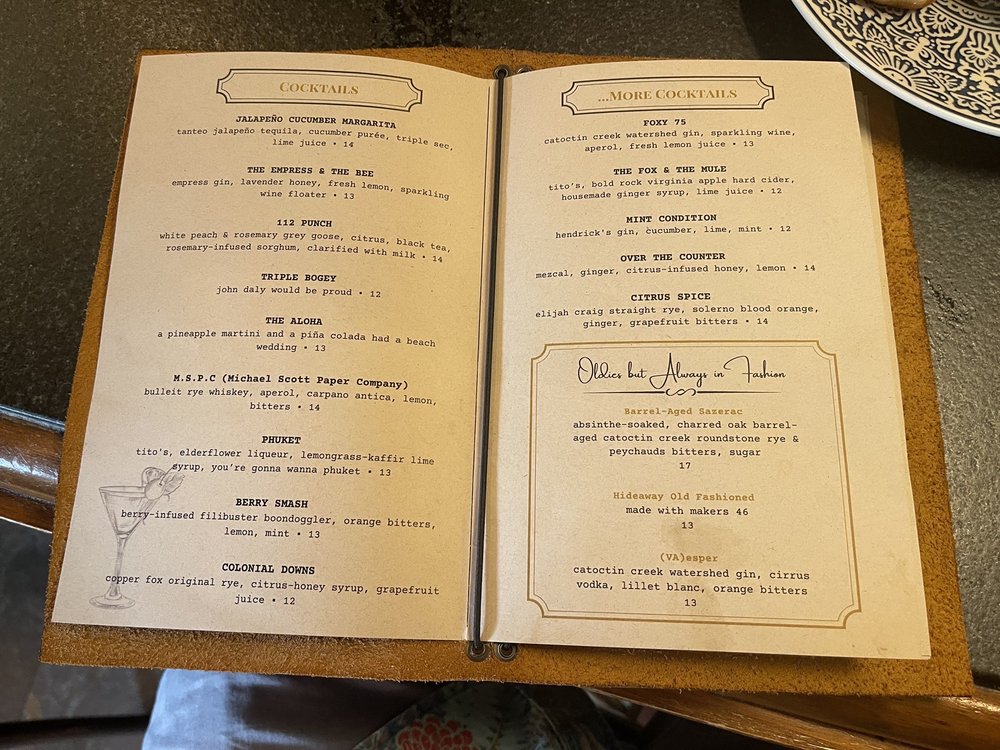 COCKTAILS
JALAPEÑO CUCUMBER MARGARITA
tanteo jalapeño tequila, cucumber purée, triple sec,
lime juice • 14
THE EMPRESS & THE BEE
empress gin, lavender honey, fresh lemon, sparkling
wine floater • 13
112 PUNCH
white peach & rosemary grey goose, citrus, black tea,
rosemary-infused sorghum, clarified with milk • 14
TRIPLE BOGEY
john daly would be proud • 12
THE ALOHA
a pineapple martini and a piña colada had a beach
wedding • 13
M.S.P.C (Michael Scott Paper Company)
bulleit rye whiskey, aperol, carpano antica, lemon,
bitters • 14
PHUKET
tito's, elderflower liqueur, lemongrass-kaffir lime
syrup, you're gonna wanna phuket • 13
BERRY SMASH
berry-infused filibuster boondoggler, orange bitters,
lemon, mint • 13
COLONIAL DOWNS
copper fox original rye, citrus-honey syrup, grapefruit
juice • 12
...MORE COCKTAILS
FOXY 75
catoctin creek watershed gin, sparkling wine,
aperol, fresh lemon juice • 13
THE FOX & THE MULE
tito's, bold rock virginia apple hard cider,
housemade ginger syrup, lime juice • 12
MINT CONDITION
hendrick's gin, cucumber, lime, mint • 12
OVER THE COUNTER
mezcal, ginger, citrus-infused honey, lemon • 14
CITRUS SPICE
elijah craig straight rye, solerno blood orange,
ginger, grapefruit bitters • 14
Oldies but Always in Fashion
Barrel-Aged Sazerac
absinthe-soaked, charred oak barrel-
aged catoctin creek roundstone rye &
peychauds bitters, sugar
17
Hideaway Old Fashioned
made with makers 46
13
(VA)esper
catoctin creek watershed gin, cirrus
vodka, lillet blanc, orange bitters
13